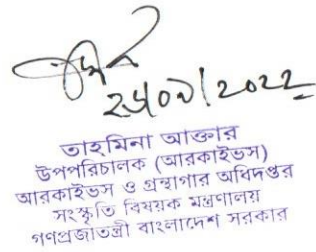 ২৬/০৯/২০২২
তাহমিনা আক্তার
উপপরিচালক (আরকাইভস)
আরকাইভস ও গ্রন্থাগার অধিদপ্তর
সংস্কৃতি বিষয়ক মন্ত্রণালয়
গণপ্রজাতন্ত্রী বাংলাদেশ সরকার